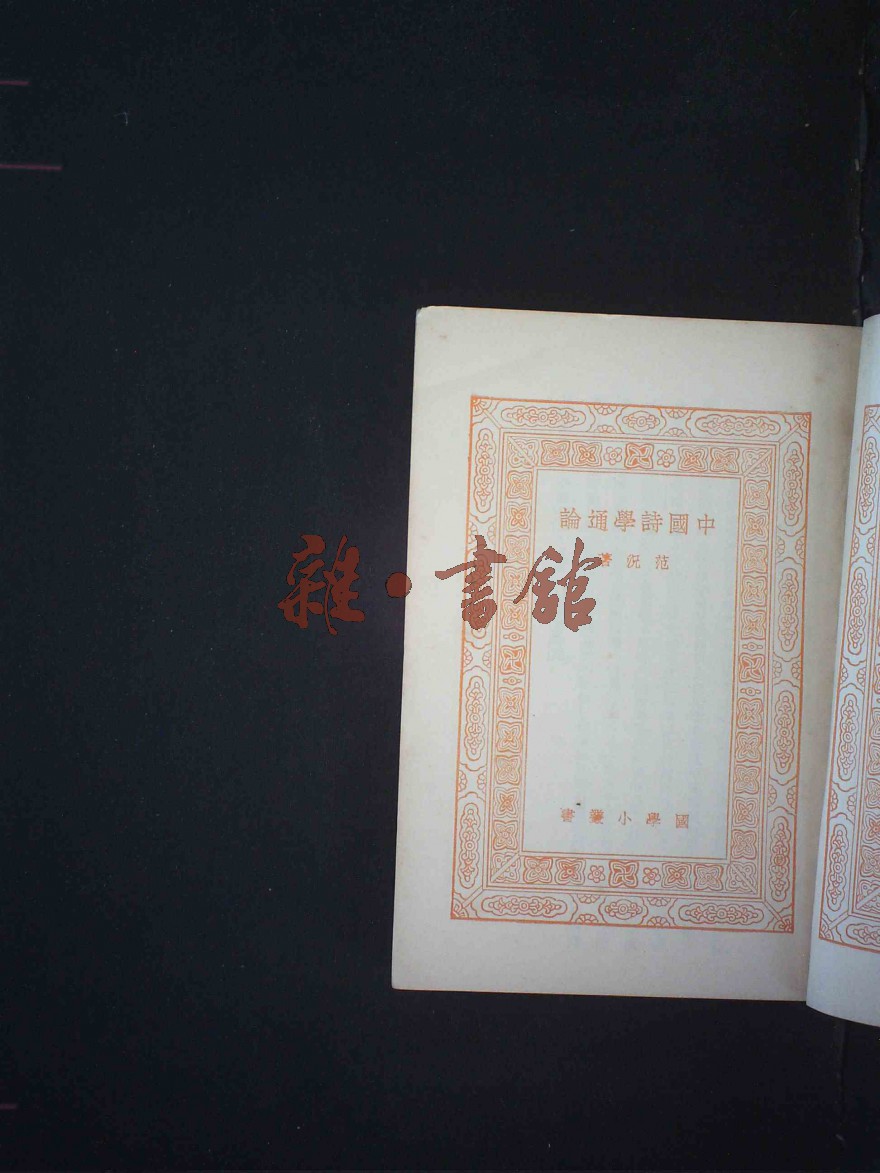 中國詩學通論
范況著
國學小叢書
雜·書館